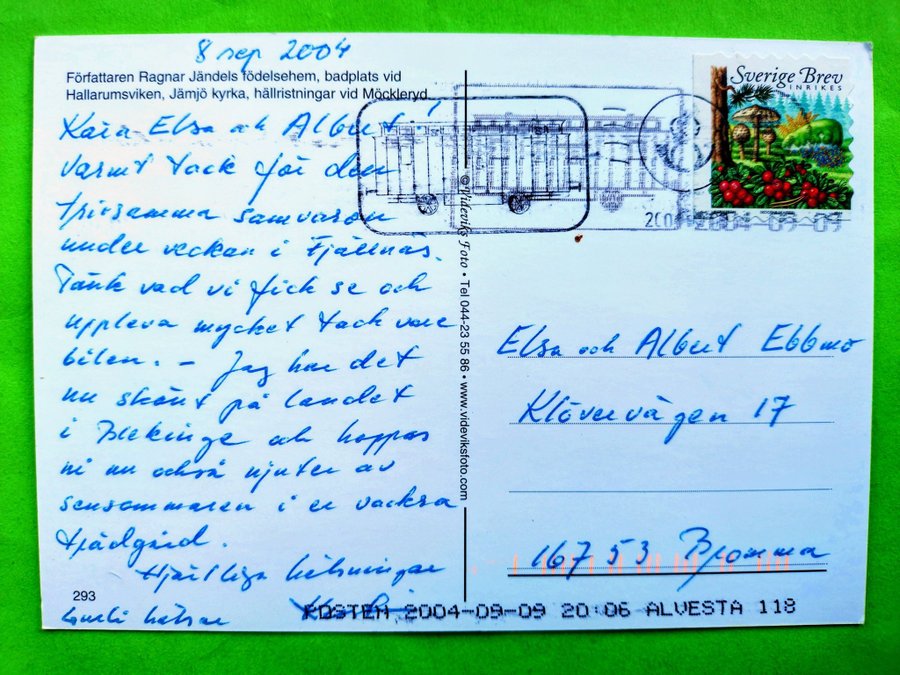 8 sep 2004
Författaren Ragnar Jändels födelsehem, badplats vid
Hallarumsviken, Jämjö kyrka, hällristningar vid Möckleryd
Kära Elsa och Albert!
Varmt tack för den
trivsamma samvaron
under veckan i Fjällnäs.
Tänk vad vi fick se och
uppleva mycket tack vare
bilen. – Jag har det
nu skönt på landet
i Blekinge och hoppas
ni nu också njuter av
sensommaren i er vackra
trädgård.
Hjärtliga hälsningar
hälsar
293
© Videviks Foto • Tel 044-23 55 86 • www.videviksfoto.com
Sverige Brev
INRIKES
2004-09-09
Elsa och Albert Ebbmo
Klövervägen 17
167 53 Bromma
POSTEN 2004-09-09 20:06 ALVESTA 118